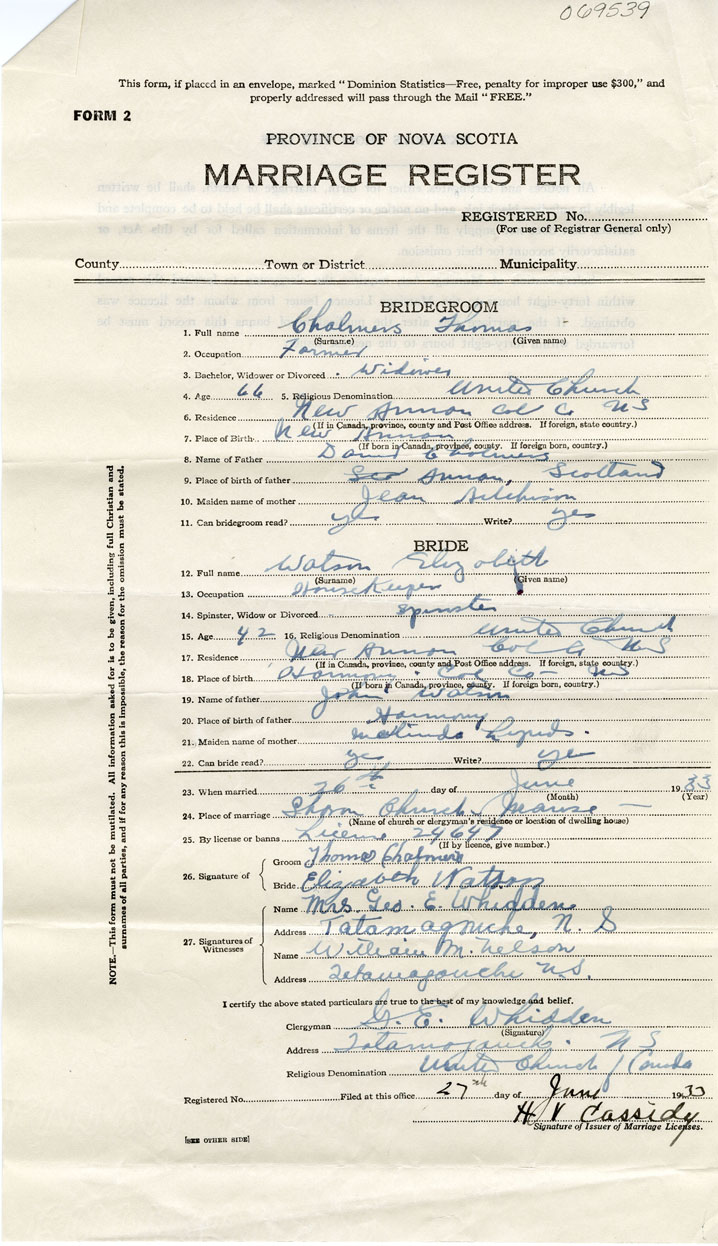 069539
This form, if placed in an envelope, marked "Dominion Statistics—Free, penalty for improper use $300," and
properly addressed will pass through the Mail "FREE."
FORM 2
PROVINCE OF NOVA SCOTIA
MARRIAGE REGISTER
REGISTERED No.
(For use of Registrar General only)
County Town or District Municipality
BRIDEGROOM
1. Full name Chalmers Thomas
(Surname) (Given name)
2. Occupation Farmer
3. Bachelor, Widower or Divorced Widower
4. Age 66 5. Religious Denomination United Church
6. Residence New Annan Col Co NS
(If in Canada, province, county and Post Office address. If foreign, state country.)
7. Place of Birth New Annan
(If born in Canada, province, county. If foreign born, country.)
8. Name of Father David Chalmers
9. Place of birth of father Annan, Scotland
10. Maiden name of mother Jean Aitchison
11. Can bridegroom read? yes Write? yes
BRIDE
12. Full name Watson Elizabeth
(Surname) (Given name)
13. Occupation Housekeeper
14. Spinster, Widow or Divorced Spinster
15. Age 42 16. Religious Denomination United Church
17. Residence New Annan Col Co NS
(If in Canada, province, county and Post Office address. If foreign, state country.)
18. Place of birth Harmony Col Co NS
(If born in Canada, province, county. If foreign born, country.)
19. Name of father John Watson
20. Place of birth of father Harmony
21. Maiden name of mother Malinda
22. Can bride read? yes Write? yes
23. When married 26th day of June 1933
(Month) (Year)
24. Place of marriage Church Manse
(Name of church or clergyman's residence or location of dwelling house)
25. By license or banns License 24647
(If by licence, give number.)
26. Signature of Groom Thomas Chalmers
Bride Elizabeth Watson
27. Signatures of Witnesses Name Mrs. Geo. E. Whidden
Address Tatamagouche, N. S
Name William M. Nelson
Address Tatamagouche N.S.
I certify the above stated particulars are true to the best of my knowledge and belief.
Clergyman G. E. Whidden
(Signature)
Address Tatamagouche. N S
Religious Denomination United Church / Canada
Registered No. Filed at this office 27th day of June 1933
H V Cassidy
Signature of Issuer of Marriage Licenses.
[SEE OTHER SIDE]
NOTE.—This form must not be mutilated. All information asked for is to be given, including full Christian and
surnames of all parties, and if for any reason this is impossible, the reason for the omission must be stated.